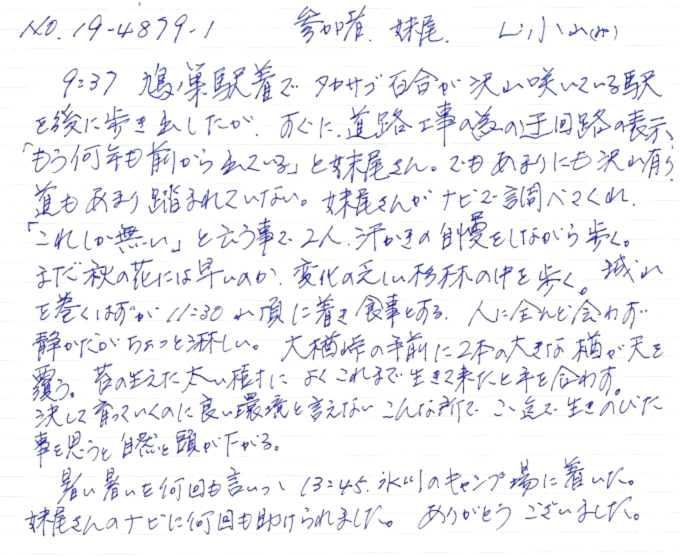 NO. 19-4879-1 参加者. 妹尾. L小山(み)
9:37 鳩ノ巣駅着で タカサゴ百合が沢山咲いている駅
を後に歩き出したが、すぐに、道路工事の為の迂回路の表示、
「もう何年も前から出ている」と妹尾さん。でもあまりにも沢山有り
道もあまり踏まれていない。妹尾さんがナビで調べてくれ、
「これしか無い」と云う事で2人、汗かきの自慢をしながら歩く。
まだ秋の花には早いのか、変化の乏しい杉林の中を歩く。城山
を巻くはずが 11:30 山頂に着き食事とする。人に全んど会わず
静かだがちょっと淋しい。大楢峠の手前に2本の大きな楢が天を
覆う。苔の生えた太い樹に よくこれまで生きて来たと手を合わす。
決して育っていくのに良い環境と言えない こんな所で ここ迄で生きのびた
事を思うと自然と頭が下がる。
暑い暑いを何回も言いつつ 13:45. 氷川のキャンプ場に着いた。
妹尾さんのナビに何回も助けられました。ありがとうございました。